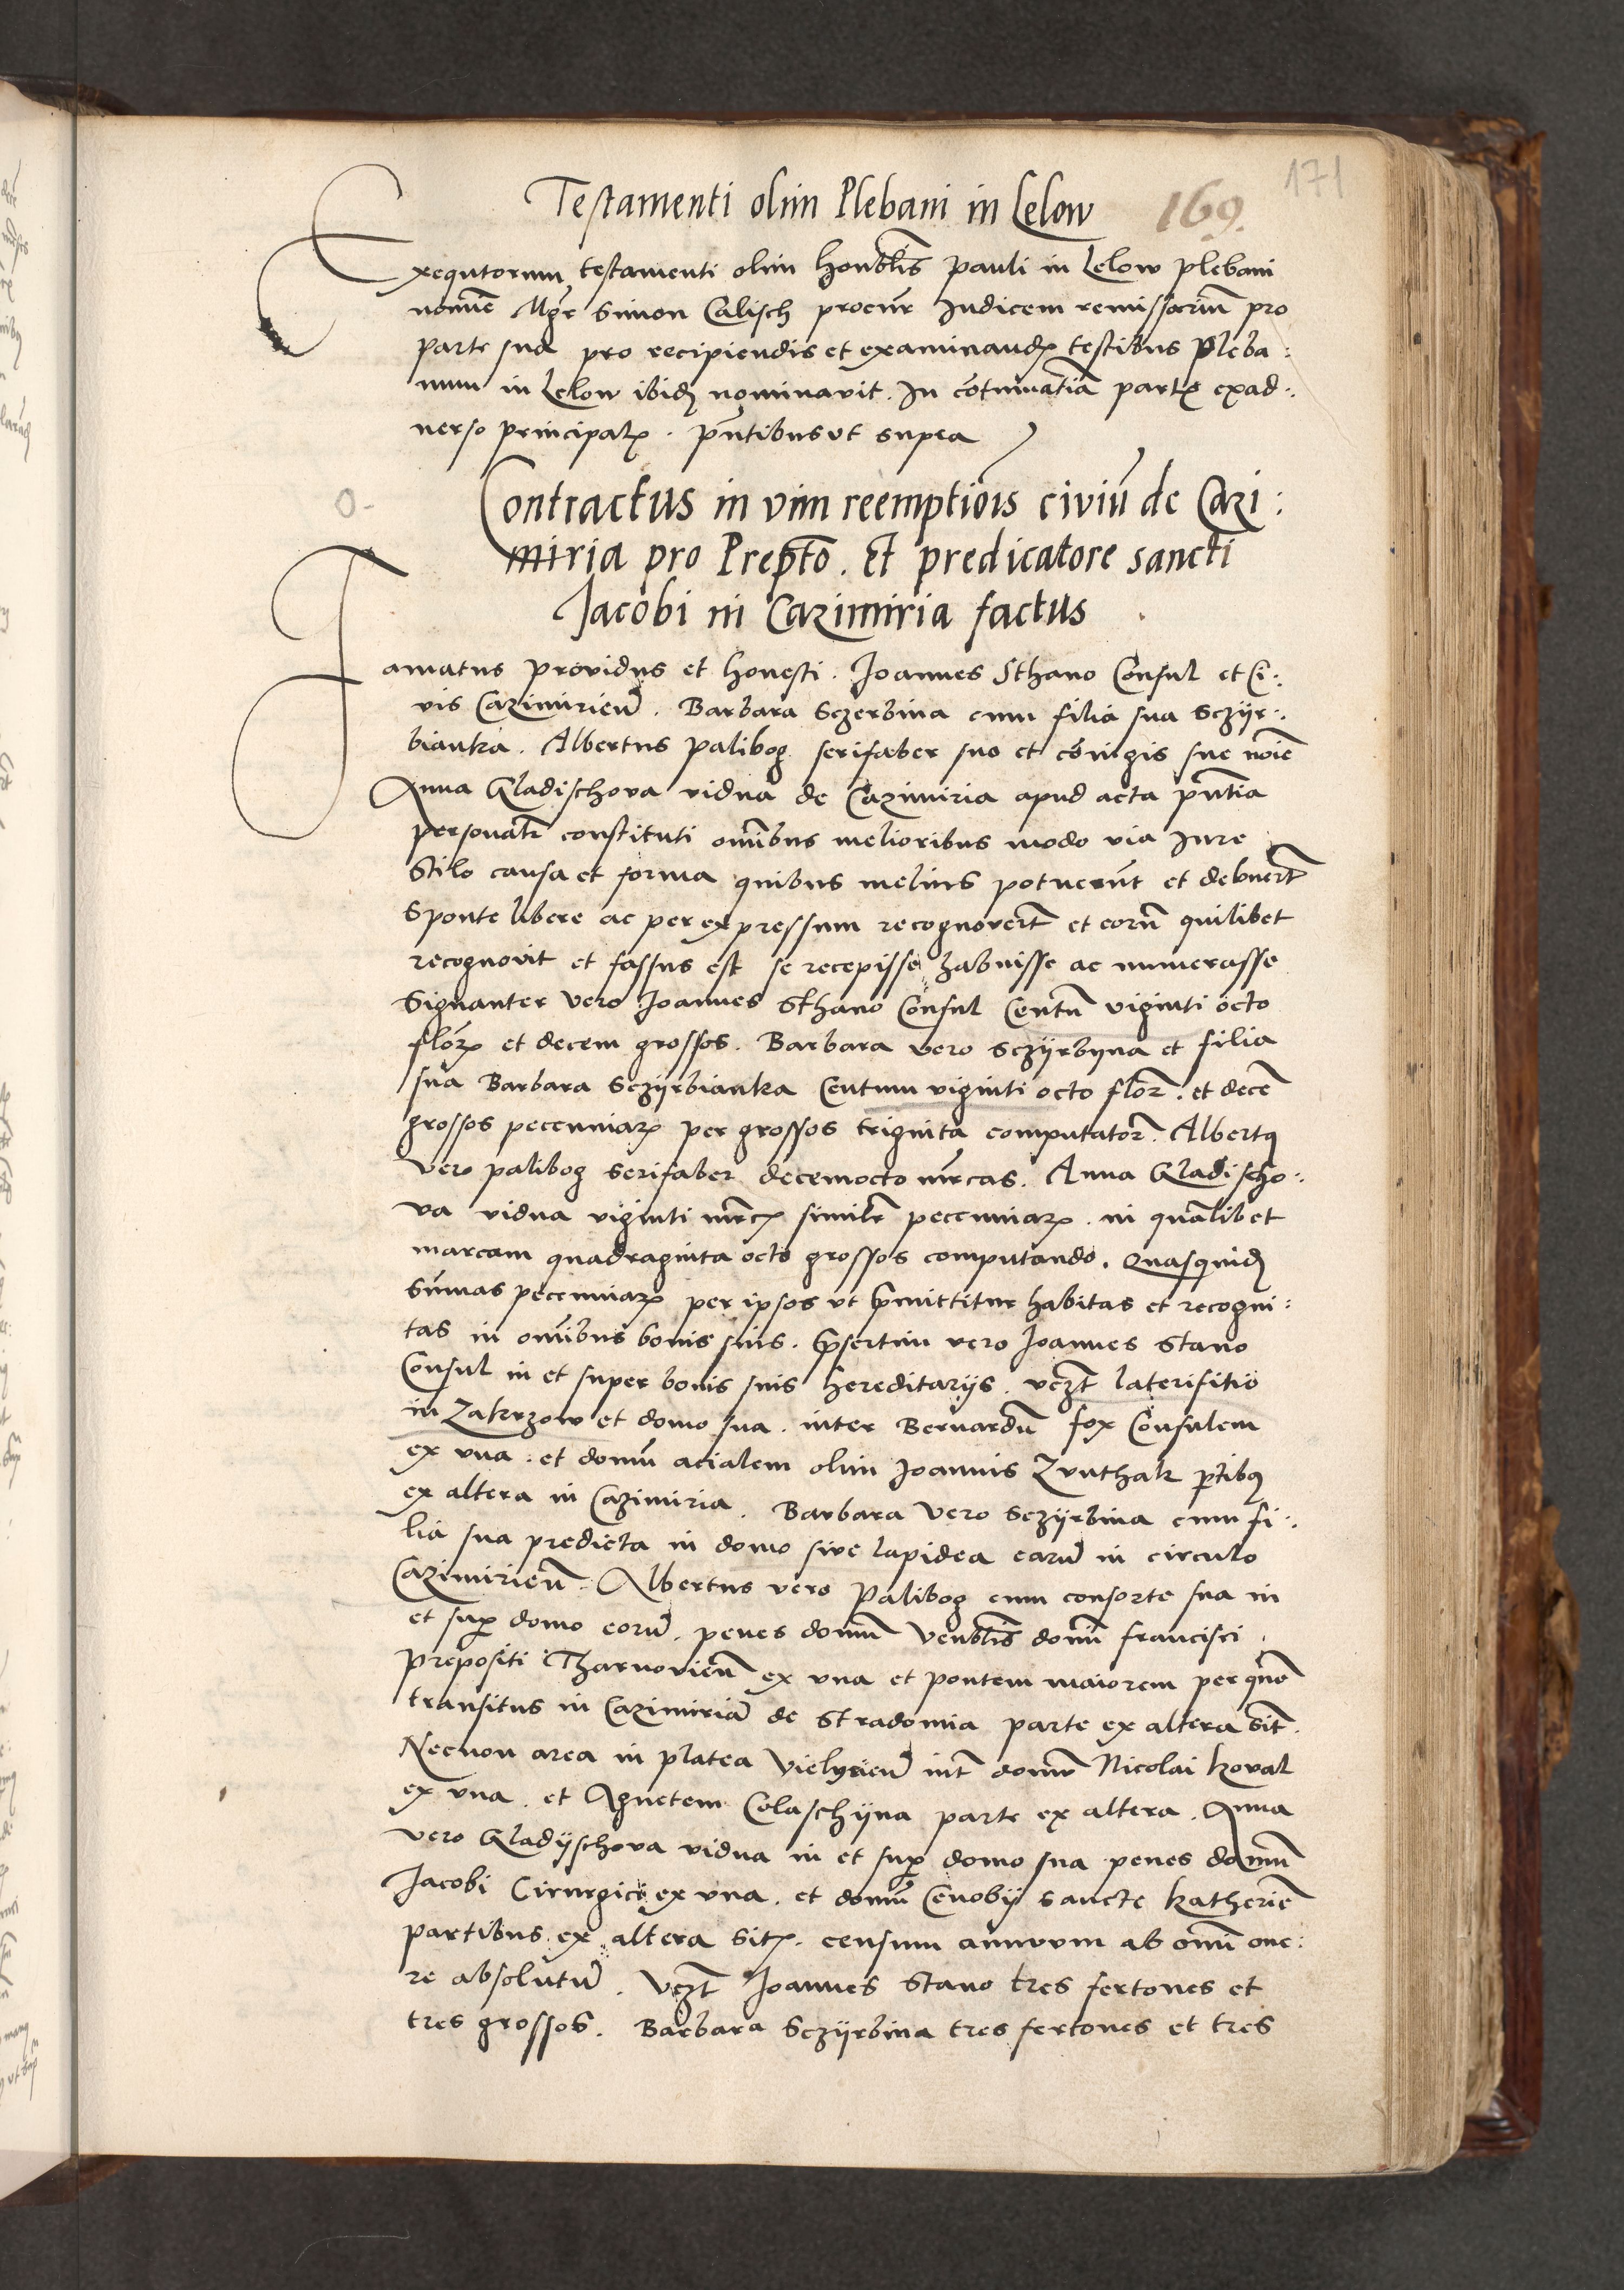 171
Testamenti olim Plebani in Lelow 169.
Exequtorum testamenti olim honblis pauli in Lelow plebani
nomine Mgr Simon Calisch procur Iudicem remissorium pro
parte sua pro recipiendis et examinandis testibus pleba:
num in Lelow ibidem nominavit. In cotumatia partis exad:
verso principalis. pntibus ut supra
O-
Contractus in vim reemptiois civiu de Cazi:
miria pro Prepto. et predicatore sancti
Jacobi in Cazimiria factus
Famatus providus et honesti. Joannes Sthano Consul et Ci:
vis Cazimirien. Barbara Sczerbina cum filia sua Sczyr:
bianka. Albertus palibog serifaber suo et coniugis sue noie
Anna Gladischova vidua de Cazimiria apud acta pntia
personalr constituti omibus melioribus modo via Jure
Stilo causa et forma quibus melius potuerunt et debuert
sponte libere ac per expressum recognovert et eoru quilibet
recognovit et fassus est se recepisse habuisse ac numerasse
Signanter vero Joannes Sthano Consul Centu viginti octo
florz et decem grossos. Barbara vero sczyrbyna et filia
sua Barbara Sczyrbianka Centum viginti octo flor. et dece
grossos pecuniarz per grossos triginta computator. Albertq
vero palibog serifaber decemocto mrcas. Anna Gladischo:
va vidua viginti mrcz similr pecuniarz. in qualibet
marcam quadraginta octo grossos computando. Quasquid
summas pecuniarz per ipsos ut pmittitur habitas et recogni:
tas in omibus bonis suis. psertim vero Joannes Stano
Consul in et super bonis suis hereditarijs. vczt laterifitio
in Zakrzow et domo sua. inter Bernardu fox Consulem
ex una. et domu acialem olim Joannis Zvnthak ptibq
ex altera in Cazimiria. Barbara vero sczyrbina cum fi:
lia sua predicta in domo sive lapidea earu in circulo
Cazimirien. Albertus vero Palibog cum consorte sua in
et sup domo eoru. penes domu venblis domi francisci
prepositi Tharnovien ex una et pontem maiorem per que
transitus in Cazimiria de Stradomia parte ex altera sit.
Necnon area in platea Vielycien int domu Nicolai koval
ex una. et Agnetem Colaschyna parte ex altera. Anna
vero Gladyschova vidua in et sup domo sua penes domu
Jacobi Cirurgici ex una. et domu Cenobij sancte katherie
partibus ex altera sitz. censum annuum ab omi one:
re absolutu. vczt Joannes Stano tres fertones et
tres grossos. Barbara Sczyrbina tres fertones et tres